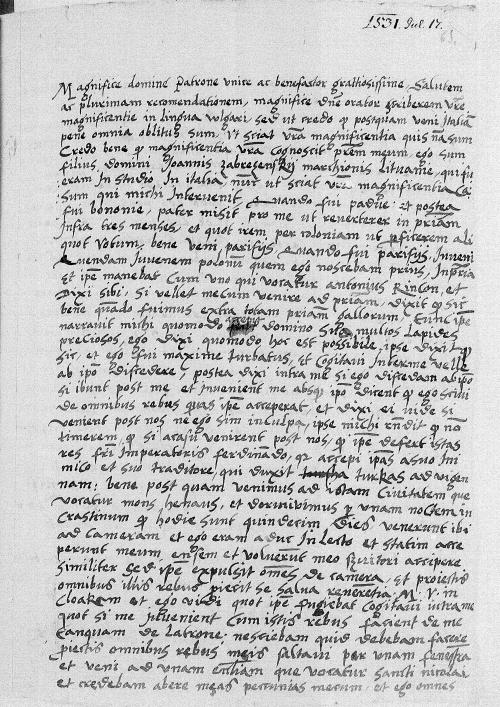 1531. Jul. 17.
63.
Magnifice domine Patrone unice ac benefactor gratiosissime, Salutem
ac plurimam recomendationem, magnifice dne orator scriberem vre
magnificentie in lingua vulgari sed ut credo q postquam veni Italiā
pene omnia oblitus sum. Ut sciat vra magnificentia quis nā sum
Credo bene q magnificentia vra Cognoscit prēm meum ego sum
filius domini Ioannis zabrezensky marchionis Lituanie, qui fu
eram In Studio In italia, nūc ut sciat vra magnificentia
sum qui michi Intervenit. Quando fui padue et postea
fui bononie, pater misit pro me ut reverterer in priam
Infra tres menses, et quot irem per coloniam ut pficerem ali
quot Votum, bene veni parisys, Quando fui parisys, Inveni
Quendam Iuvenem polonū quem ego noscebam prius, In pria
Et ipe manebat Cum uno qui vocatur antonius Rincon, et
Dixi sibi, si vellet mecum venire ad priam, dixit q sic
bene quādo fuimus extra totam priam gallorum, Tunc ipe
narravit michi quomodo domino suo multos lapides
preciosos, ego dixi quomodo hoc est possibile, ipse dixit q
sic, et ego fui maxime turbatus, et Cogitavi Inter me velle
ab ipo discedere, postea dixi intra me si ego discedam ab ipo
si ibunt post me et Invenient me absq ipo dicent q ego scivi
de omnibus rebus quas ipe acceperat, et dixi ei vide si
venient post nos ne ego sim in culpa, ipse michi rn̄dit q nō
timerem, q si a casu venirent post nos, q ipe defert istas
res fri Imperatoris ferdinādo, q accepi ipas a suo Ini
mico et suo traditore, qui duxit turkas ad vigen
nam; bene post quam venimus ad istam Civitatem que
vocatur mons henaus, et dormivimus p unam noctem in
Crastinum q hodie sunt quindecim dies venerunt ibi
ad Cameram et ego eram aduc In lecto et statim acce
perunt meum ensem et voluerunt meo servitori accipere
similiter sed ipe expulsit ōmes de camera, Et proiectis
omnibus illis rebus salva reverētia M. V. in
Cloakam et ego vidi quot ipe fugiebat Cogitavi intra me
quot si me Invenient Cum istis rebus facient de me
tanquam de latrone, nesciebam quid debebam facere
omnibus rebus meis saltavi per unam fenestra
et veni ad unam Ecclīam que vocatur sancti nicolai
et credebam abere meas pecunias mecum, et ego omnes